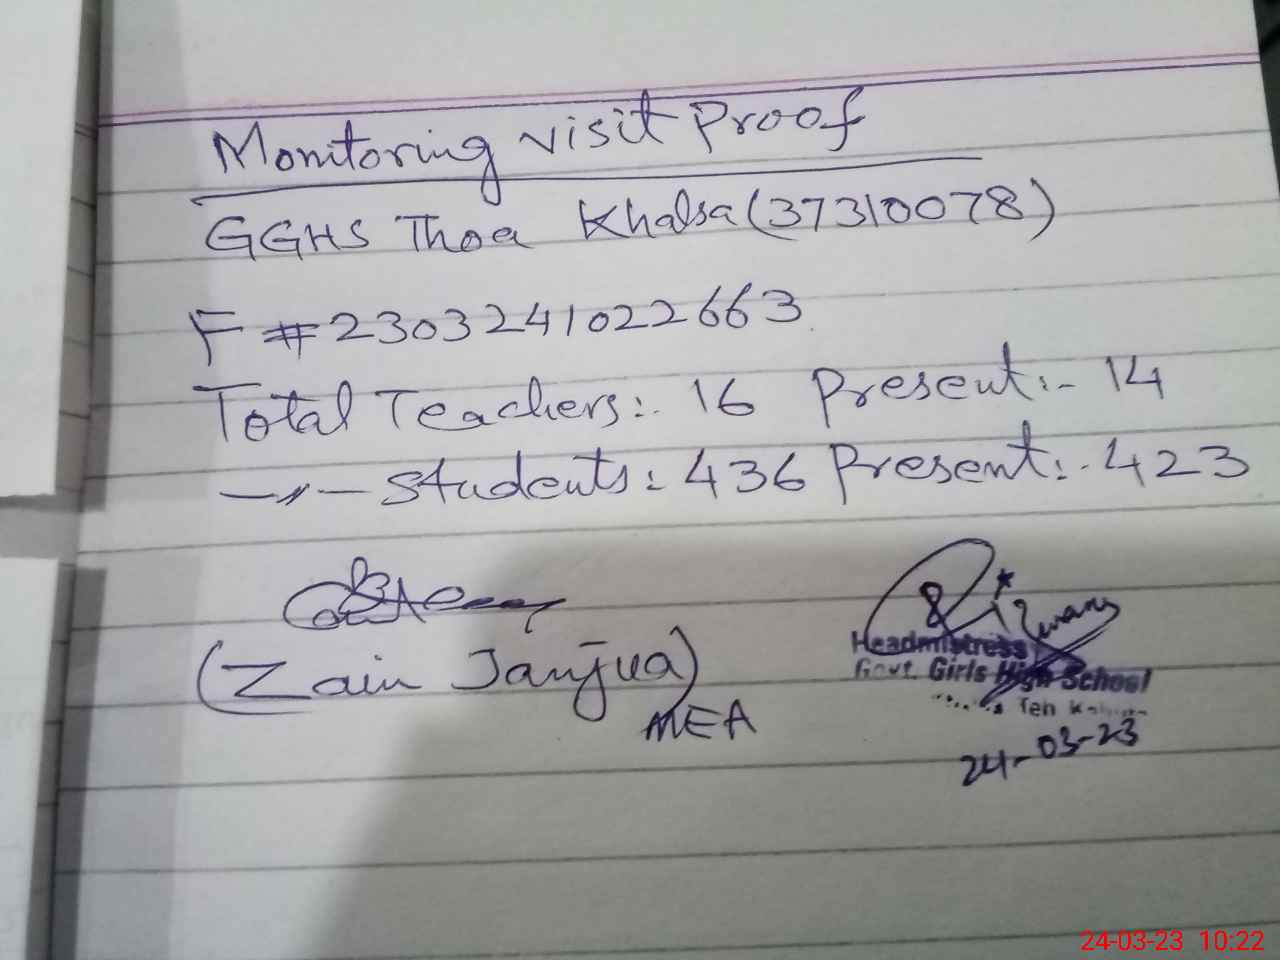 Monitoring visit Proof
GGHS Thoa Khalsa (37310078)
F # 2303241022663
Total Teachers:- 16 Present:- 14
—〃— Students: 436 Present:- 423
(Zain Janjua)
MEA
Headmistress
Govt. Girls High School
Teh
24-03-23
24-03-23 10:22